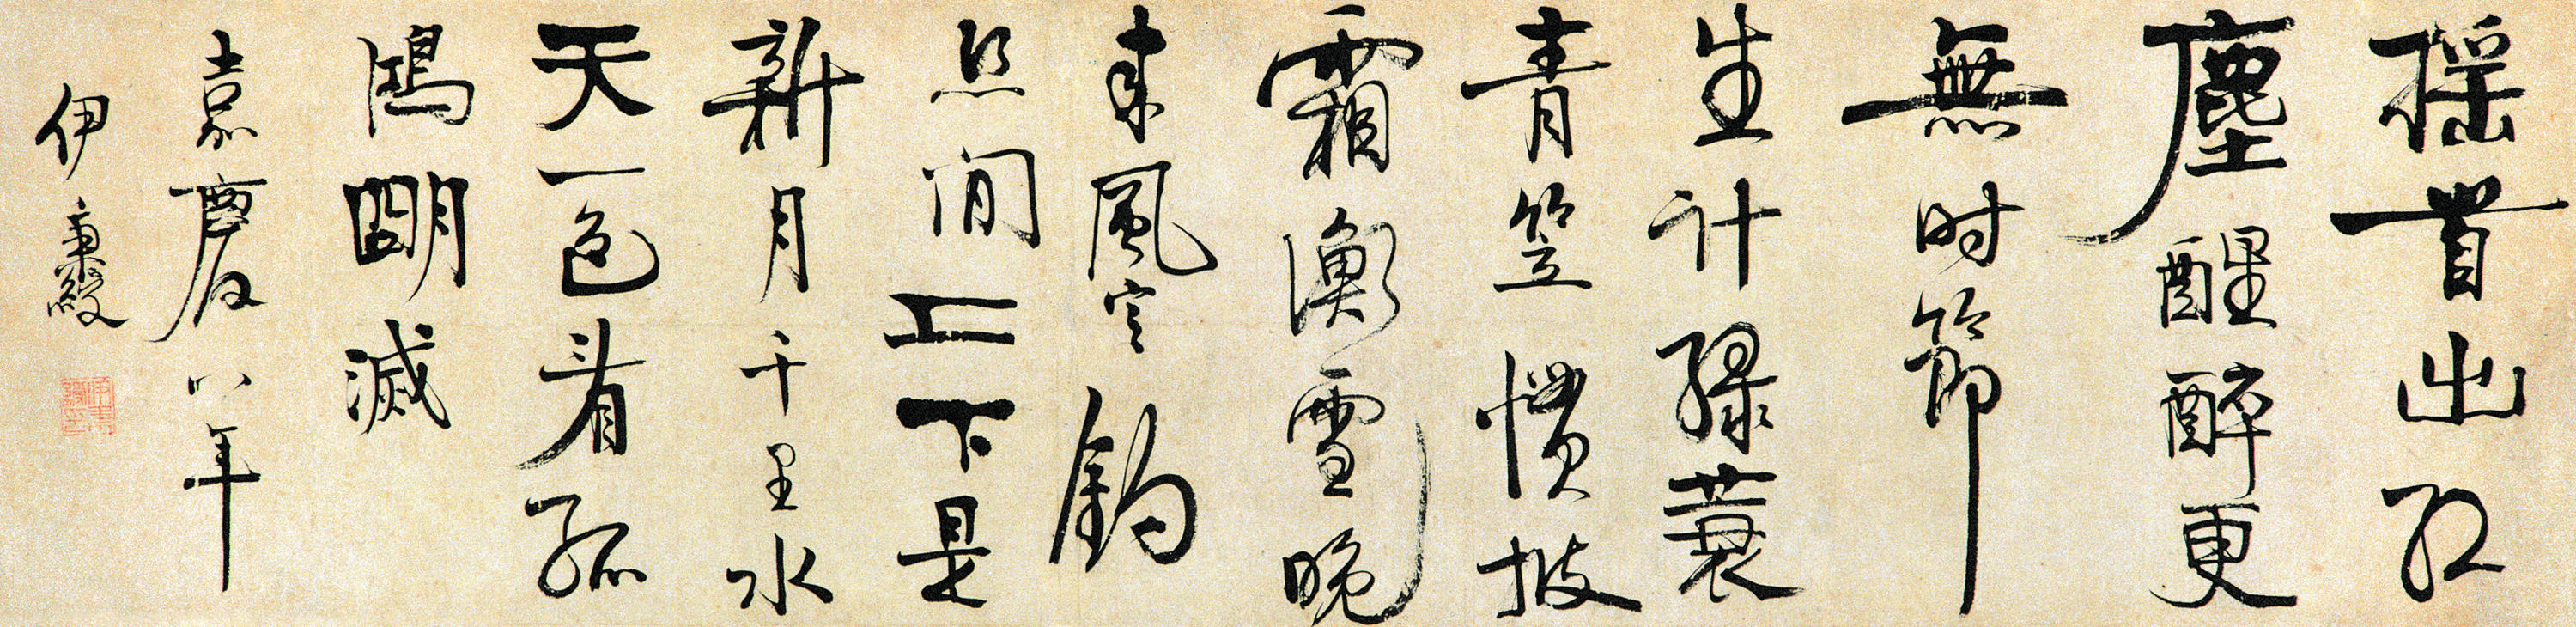 搖首出紅
塵醒醉更
無时節
生計綠蓑
青笠慣披
霜衝雪晚
來風定釣
絲閒上下是
新月千里水
天一色看孤
鴻朙滅
嘉慶八年
伊秉綬